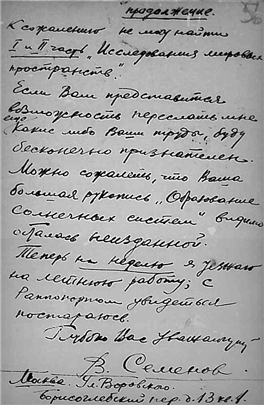 продолжение.
К сожалению не могу найти
I и II часть „Исследования мировых
пространств".
Если Вам представится
возможность переслать мне
еще какие либо Ваши труды, буду
бесконечно признателен.
Можно сожалеть, что Ваша
большая рукопись „Образование
солнечных систем" видимо
осталась неизданной.
Теперь на неделю я уезжаю
на летнюю работу; с
Раппопортом увидеться
постараюсь.
Глубоко Вас уважающий
В. Семенов.
Москва. Ул. Воровского.
Борисоглебский пер. д. 13 кв. 1.